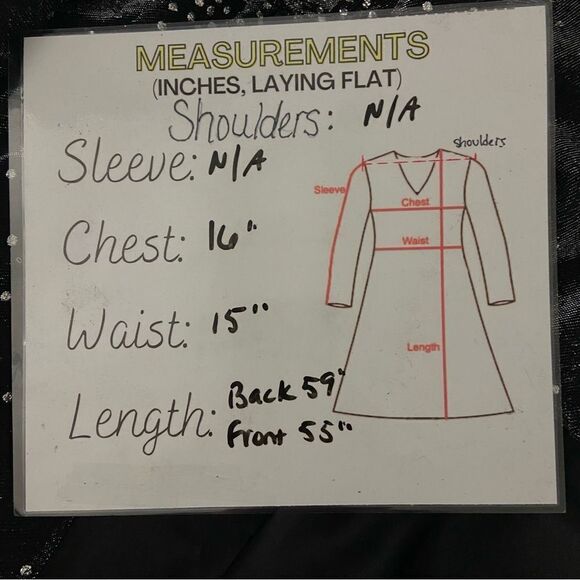 MEASUREMENTS
(INCHES, LAYING FLAT)
Shoulders: N/A
Sleeve: N/A
Chest: 16"
Waist: 15"
Length: Back 59"
Front 55"
shoulders
Sleeve
Chest
Waist
Length